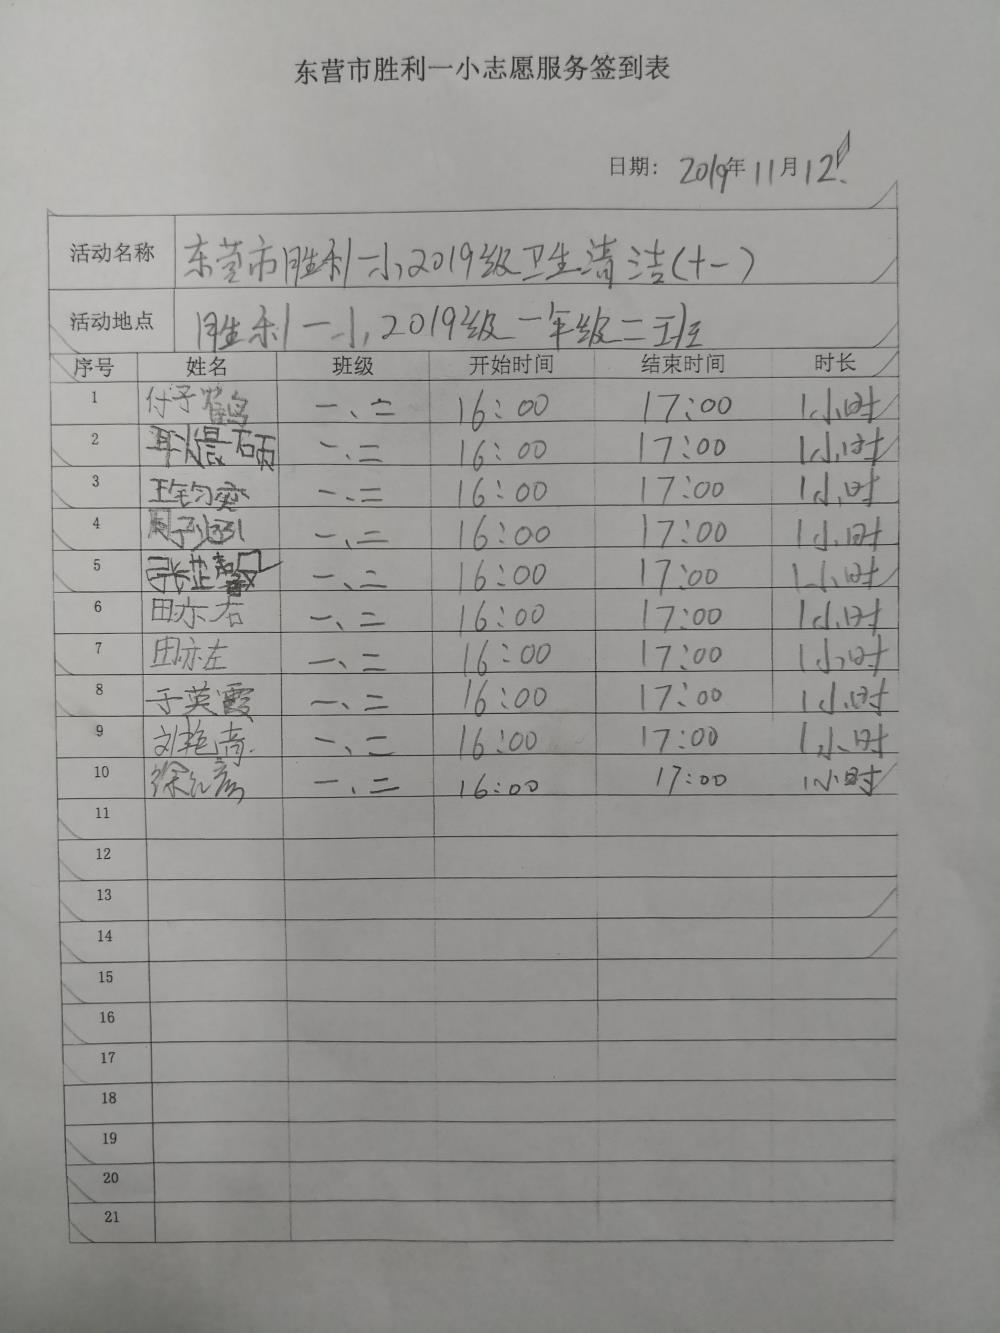 东营市胜利一小志愿服务签到表
日期: 2019年11月12
活动名称 东营市胜利一小2019级卫生清洁(十一)
活动地点 胜利一小2019级一年级二班
序号 姓名 班级 开始时间 结束时间 时长
1 付子鹤 一、二 16:00 17:00 1小时
2 一、二 16:00 17:00 1小时
3 王钧奕 一、二 16:00 17:00 1小时
4 周子涵 一、二 16:00 17:00 1小时
5 张芷馨 一、二 16:00 17:00 1小时
6 田亦右 一、二 16:00 17:00 1小时
7 田亦左 一、二 16:00 17:00 1小时
8 于英霞 一、二 16:00 17:00 1小时
9 刘艳 一、二 16:00 17:00 1小时
10 徐红彦 一、二 16:00 17:00 1小时
11
12
13
14
15
16
17
18
19
20
21